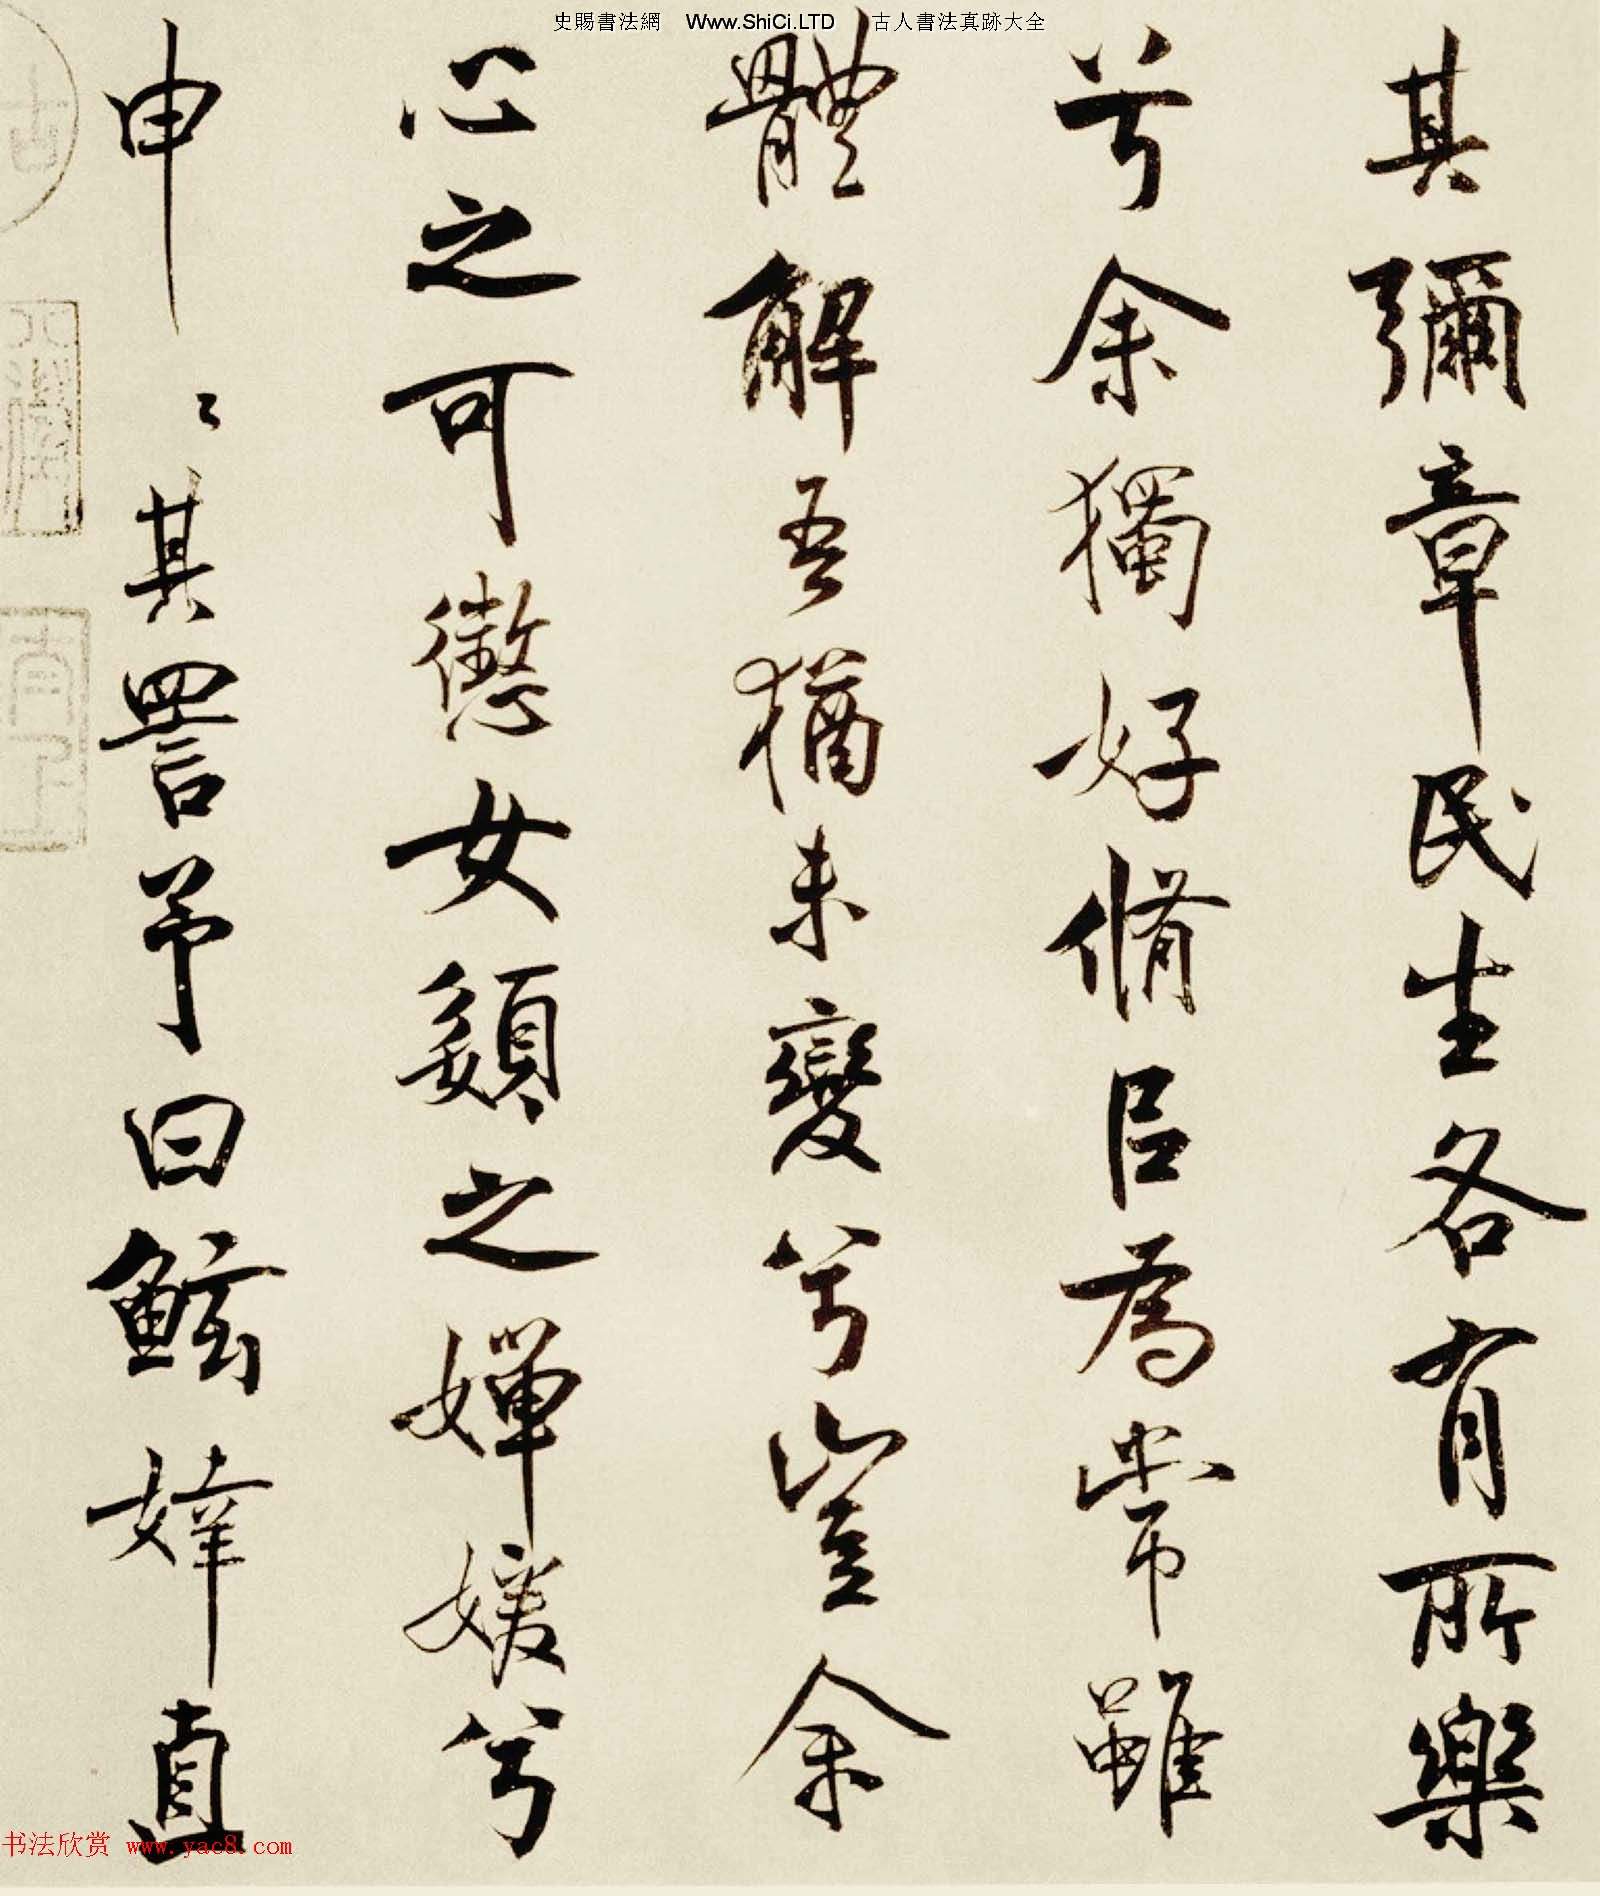 史賜書法網 Www.ShiCi.LTD 古人書法真跡大全
其彌章民生各有所樂
兮余獨好脩㠯為常雖
體解吾猶未變兮豈余
心之可懲女嬃之嬋媛兮
申〻其詈予曰鮌婞直
书法欣赏 www.yac8.com